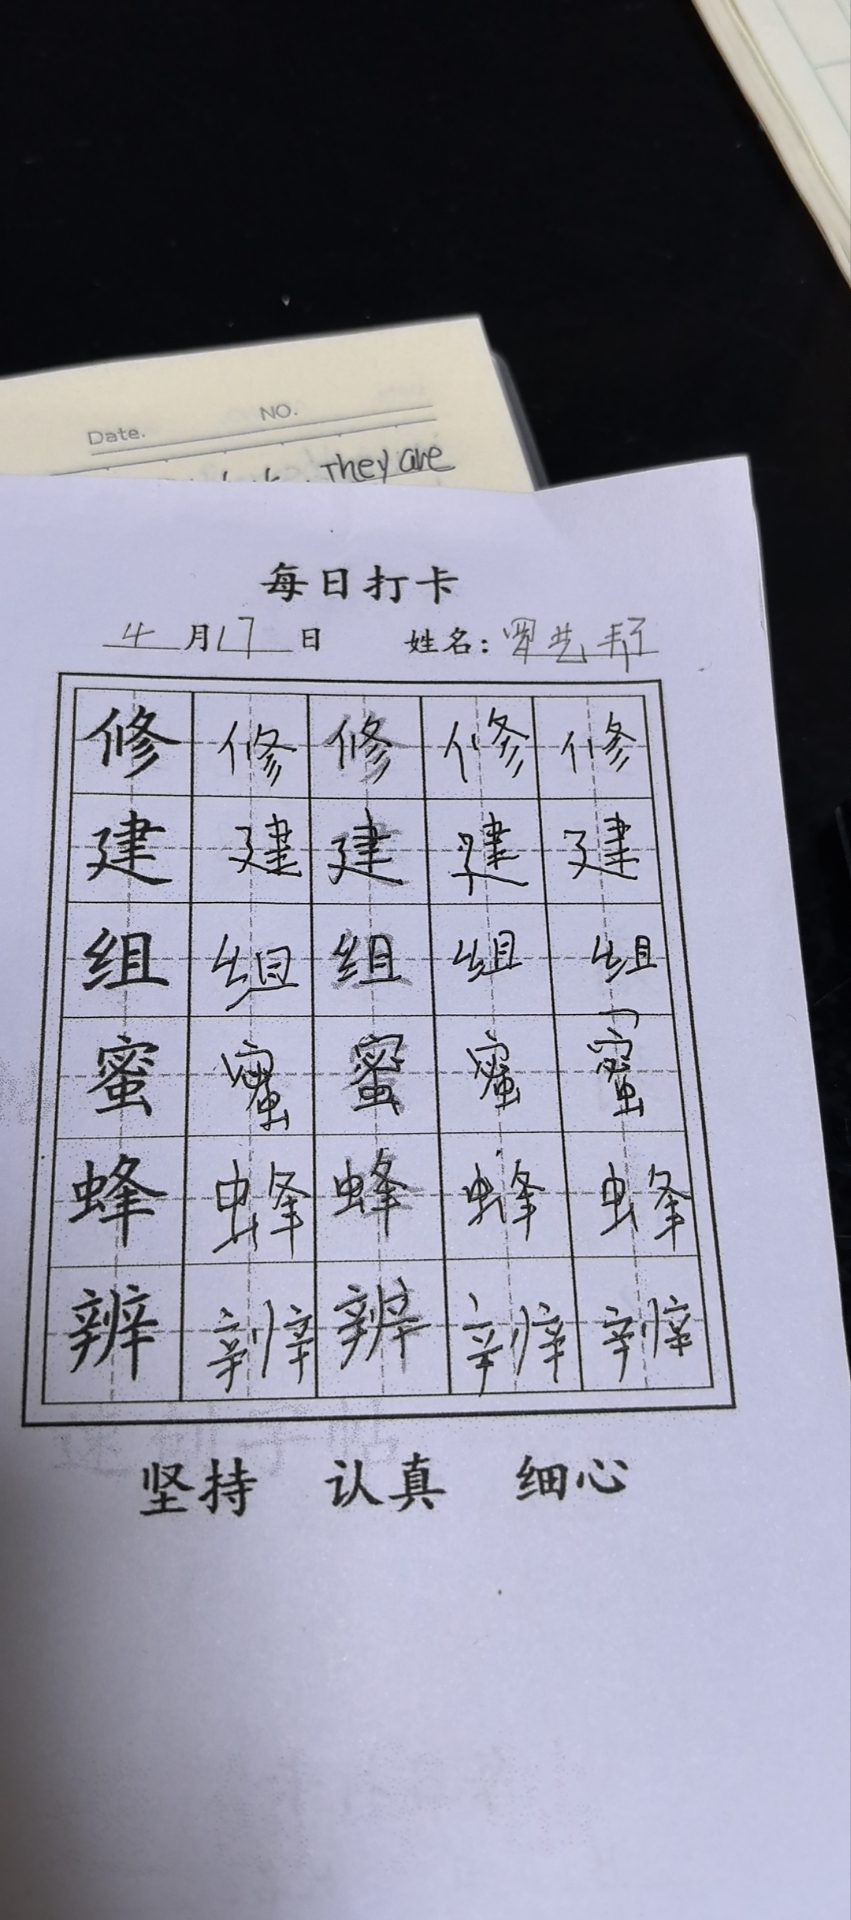 Date. NO.
They are
每日打卡
4月17日 姓名：罗艺
修 修 修 修 修
建 建 建 建 建
组 组 组 组 组
蜜 蜜 蜜 蜜 蜜
蜂 蜂 蜂 蜂 蜂
辨 辨 辨 辨 辨
坚持 认真 细心